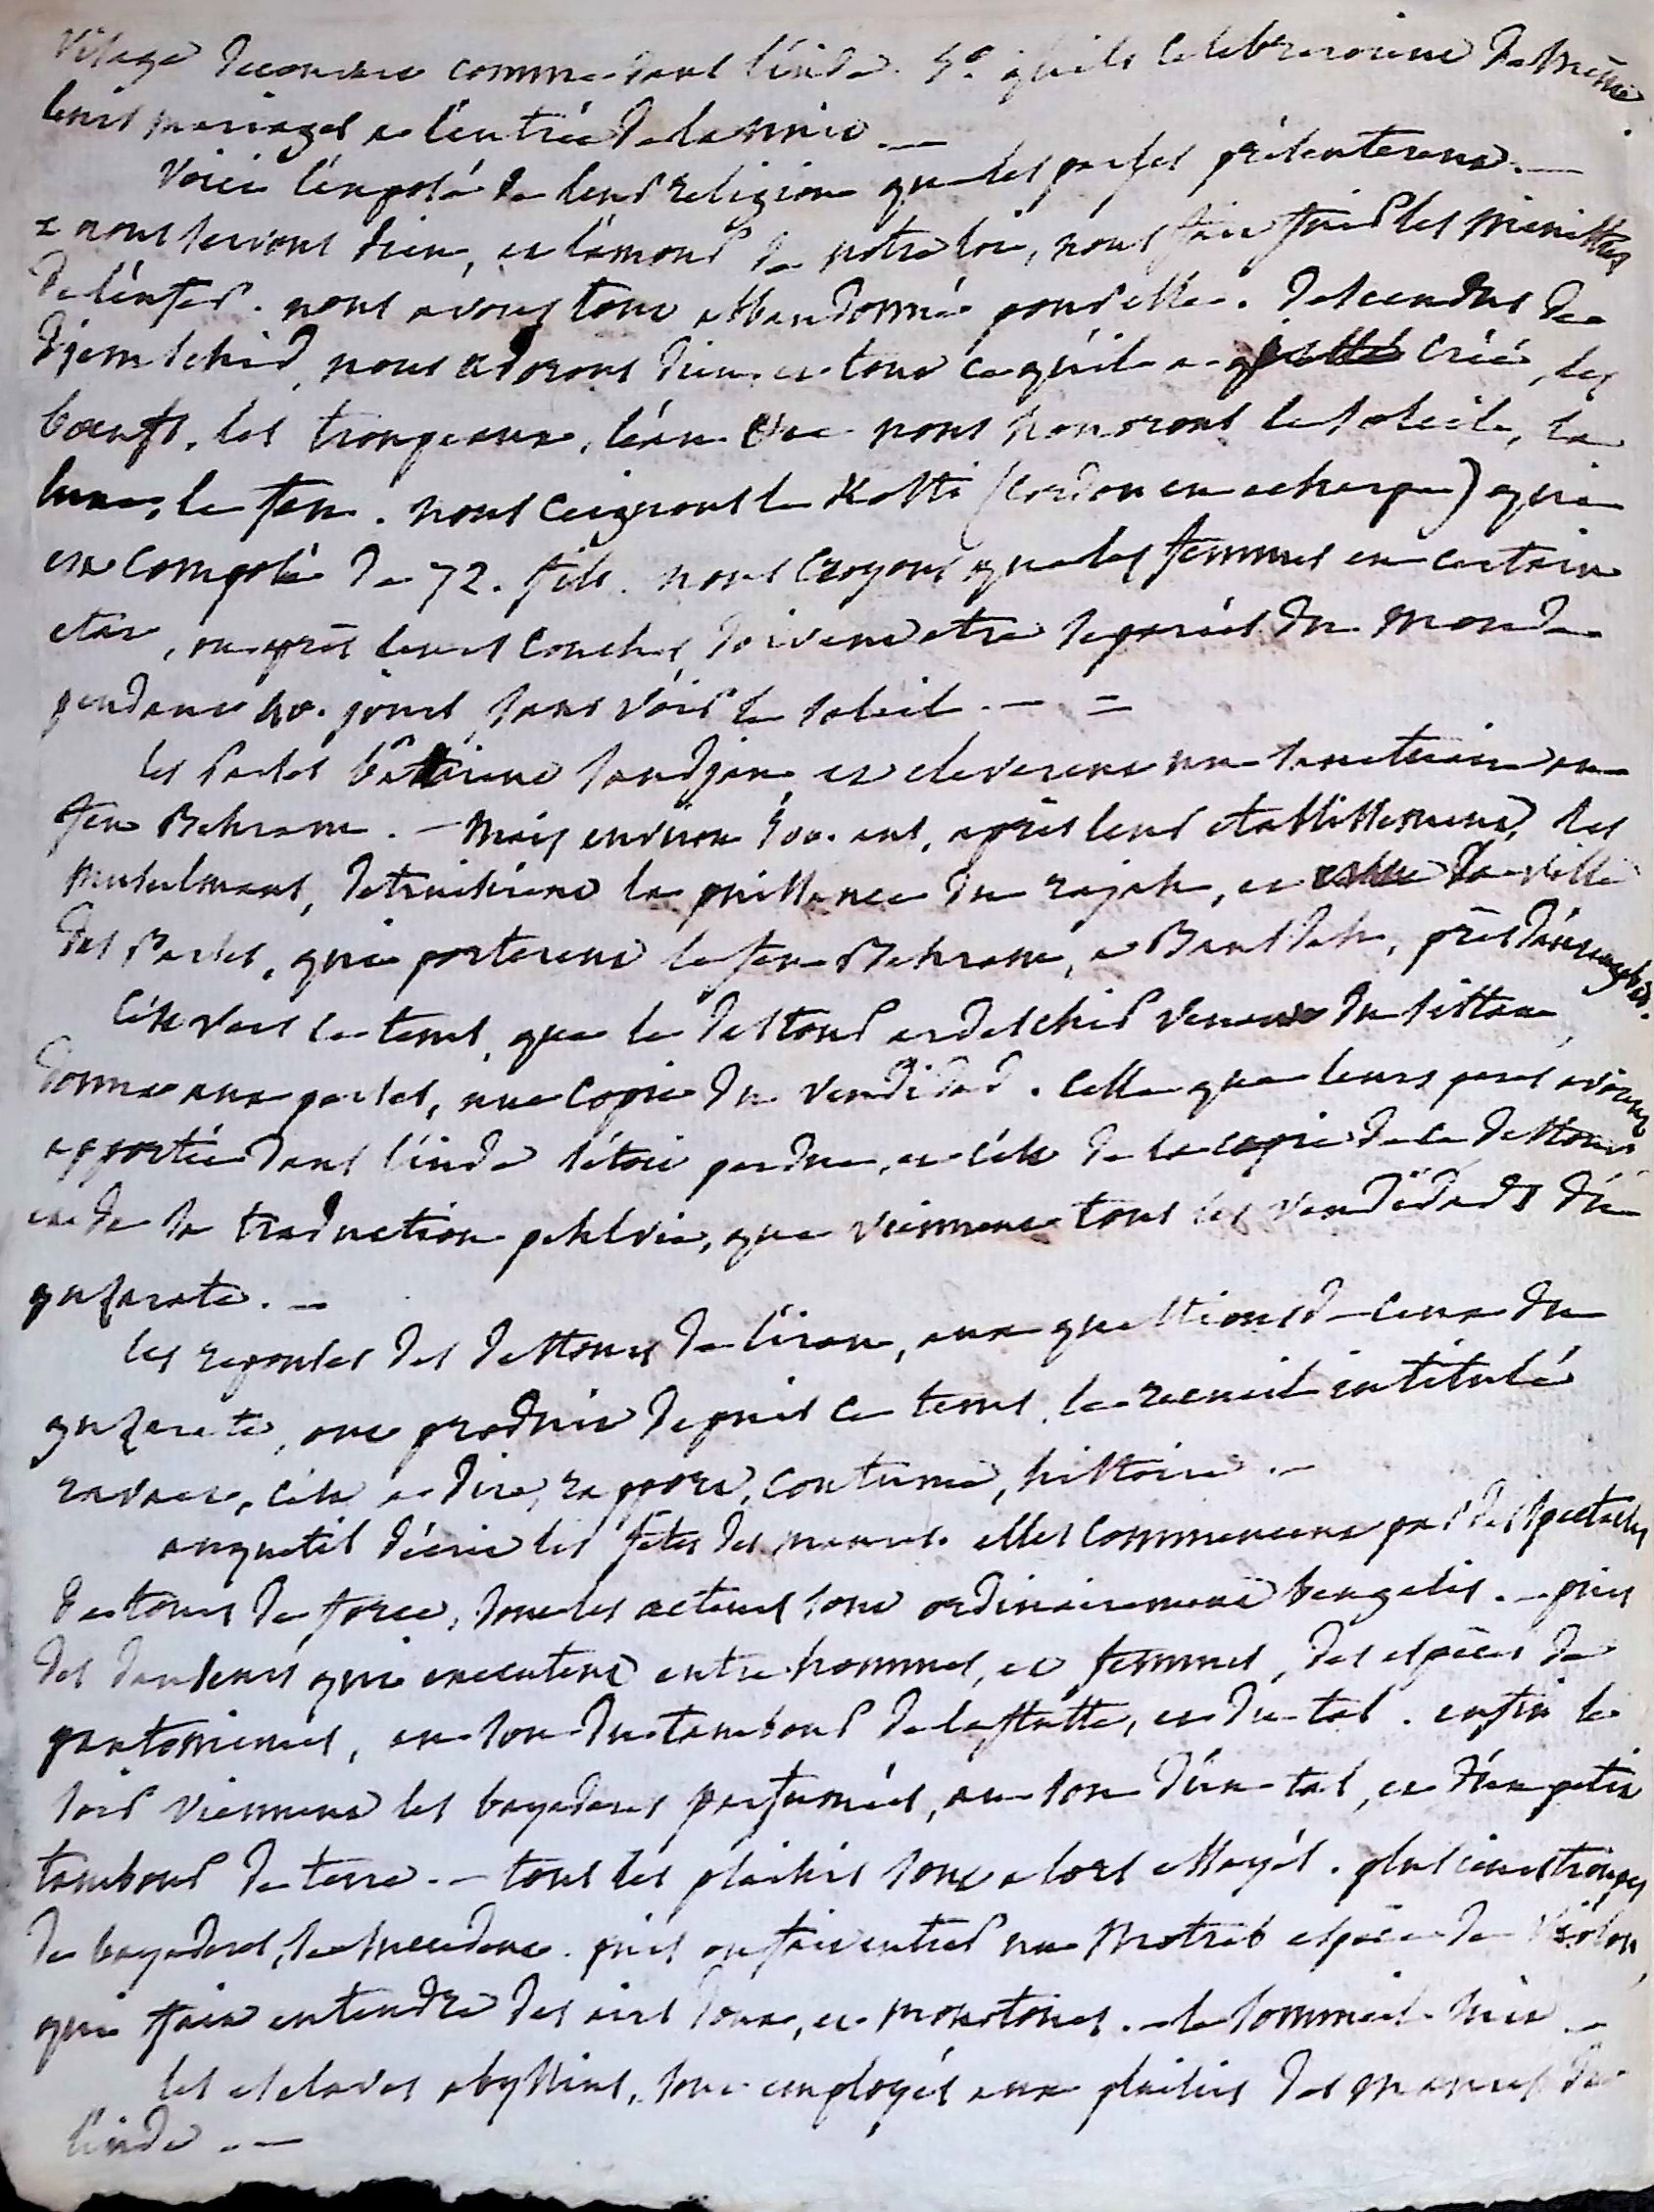 visage decouvert comme dans l'inde. 5° qu'ils celebreroient de même
leurs mariages a l'entrée de la nuit. —
Voici l'exposé de leur religion que les parses présenterent. —
= nous servons dieu, et l'amour de notre loi, nous fait fuir les ministres
de l'enfer. nous avons tout abbandonné pour elle. descendus de
djemschid, nous adorons dieu et tout ce qu'il a créé, les
boeufs, les troupeaux, l'eau &c nous honorons le soleil, la
lune, le feu. nous ceignons le Kosti (cordon en echarpe) qui
est composé de 72. fils. nous croyons que les femmes en certain
etat, ou après leurs couches, doivent etre separées du monde
pendant 40. jours, sans voir le soleil. — =
les Parses bâtirent sandjan, et eleverent un sanctuaire au
feu Behram. — Mais environ 500. ans, après leur etablissement, les
musulmans, detruisirent la puissance du rajah, et la ville
des Parses, qui porterent le feu Behram, a Bansdah, près d'
C'est vers ce tems, que le destour ardeschir venant du sistan,
donna aux parses, une copie du vendidad. Celle que leurs peres avoient
apportée dans l'inde s'étoit perdue, et c'est de la copie de ce destour
et de sa traduction pehlvie, que viennent tous les vendidads du
guzarate. —
les reponses des destours de l'iran, aux questions de ceux du
guzarate, ont produit depuis ce tems, le recueil intitulé
ravaet, c'est a dire, rapport, coutume, histoire. —
anquetil décrit les fêtes des maures. elles commencent par des spectacles
de tours de force, dont les acteurs sont ordinairement bengalis. — puis
des danseurs qui executent entre hommes, et femmes, des espèces de
pantomimes, au son du tambour de la flutte, et du tal. enfin le
soir viennent les bayaderes parfumées, au son d'un tal, et d'un petit
tambour de terre. — tous les plaisirs sont alors essayés. plusieurs troupes
de bayaderes, se succedent. puis on fait entrer un Motreb espèce de violon,
qui fait entendre des airs doux, et monotones. — le sommeil suit —
les esclaves abyssins, sont employés aux plaisirs des maures de
l'inde. —